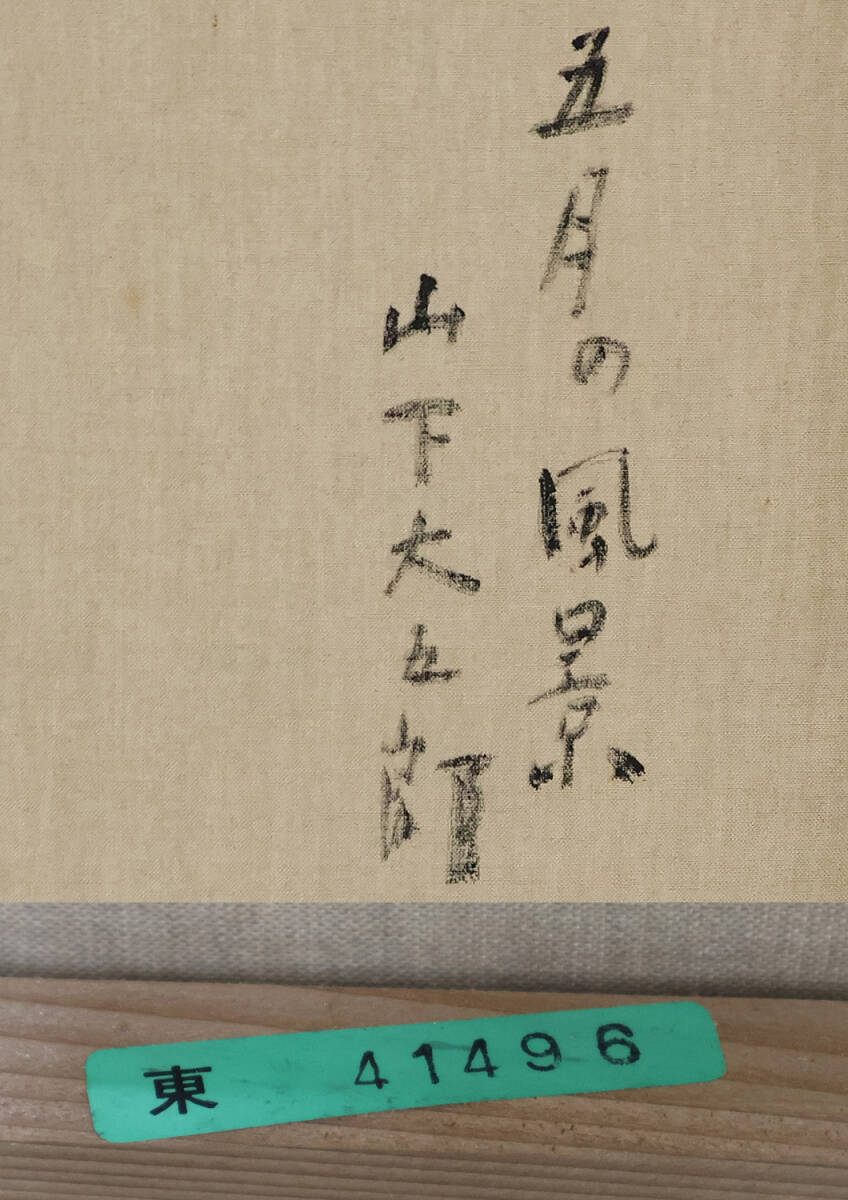 五月の風景
山下大五郎
東 41496